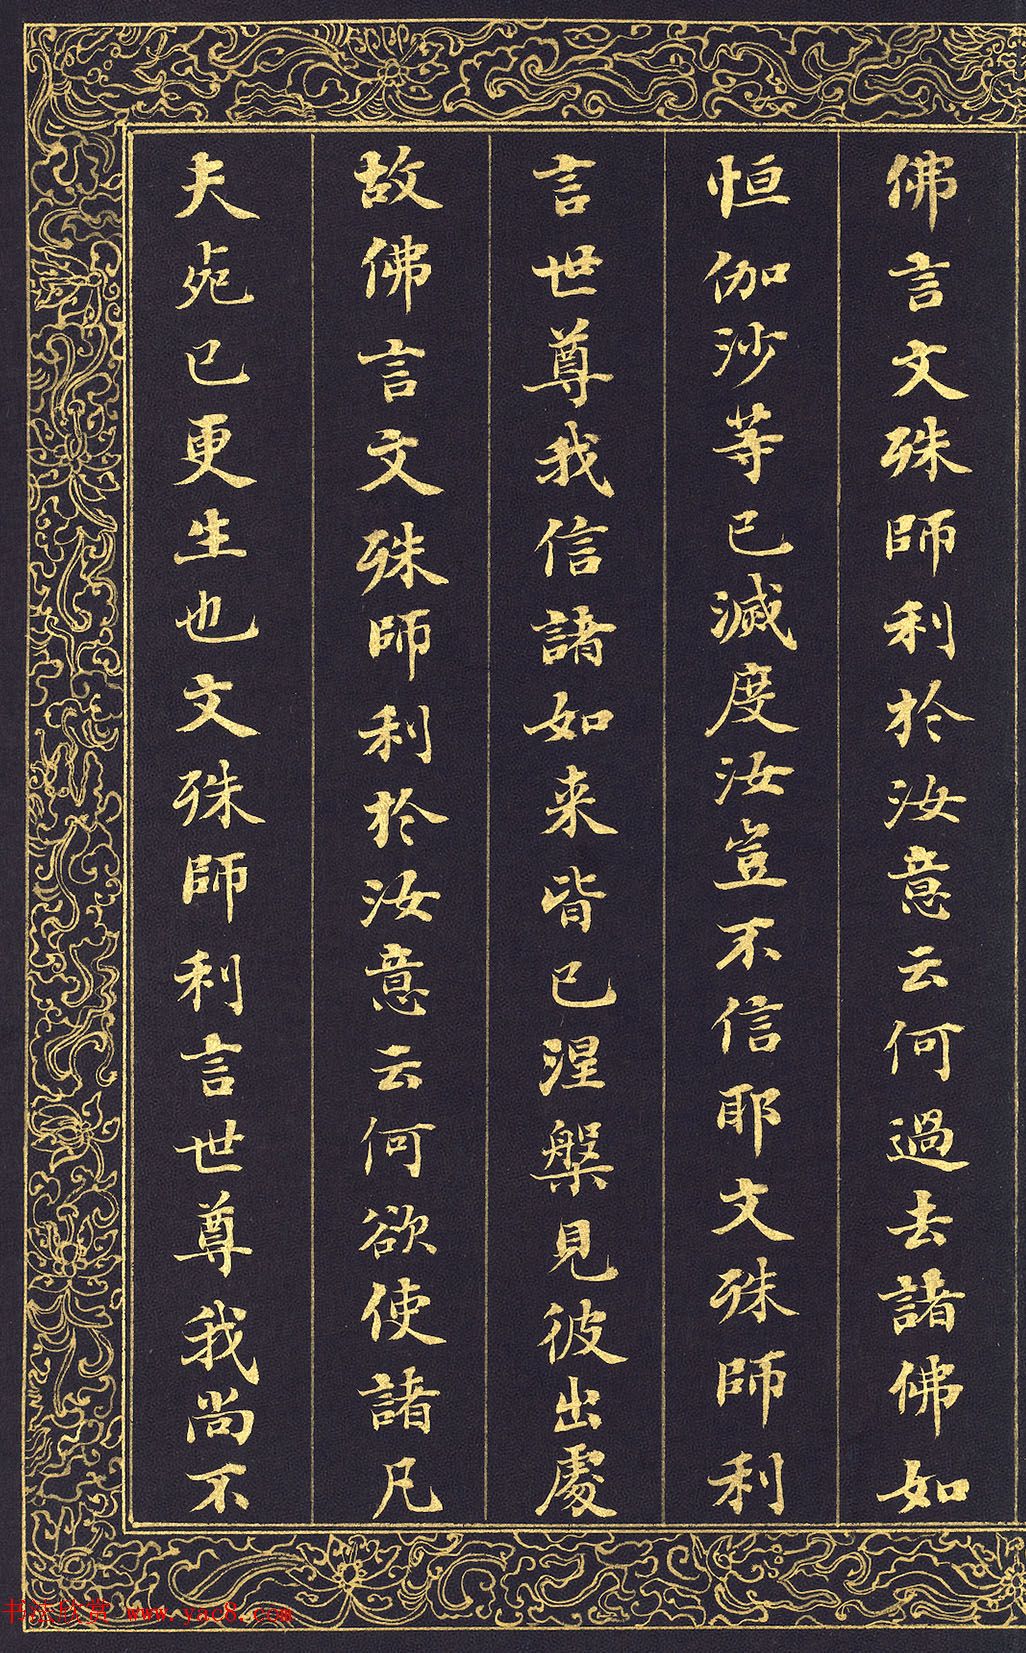 佛言文殊師利於汝意云何過去諸佛如
恒伽沙等已滅度汝豈不信耶文殊師利
言世尊我信諸如来皆已涅槃見彼出處
故佛言文殊師利於汝意云何欲使諸凡
夫死已更生也文殊師利言世尊我尚不
书法欣赏 www.yac8.com